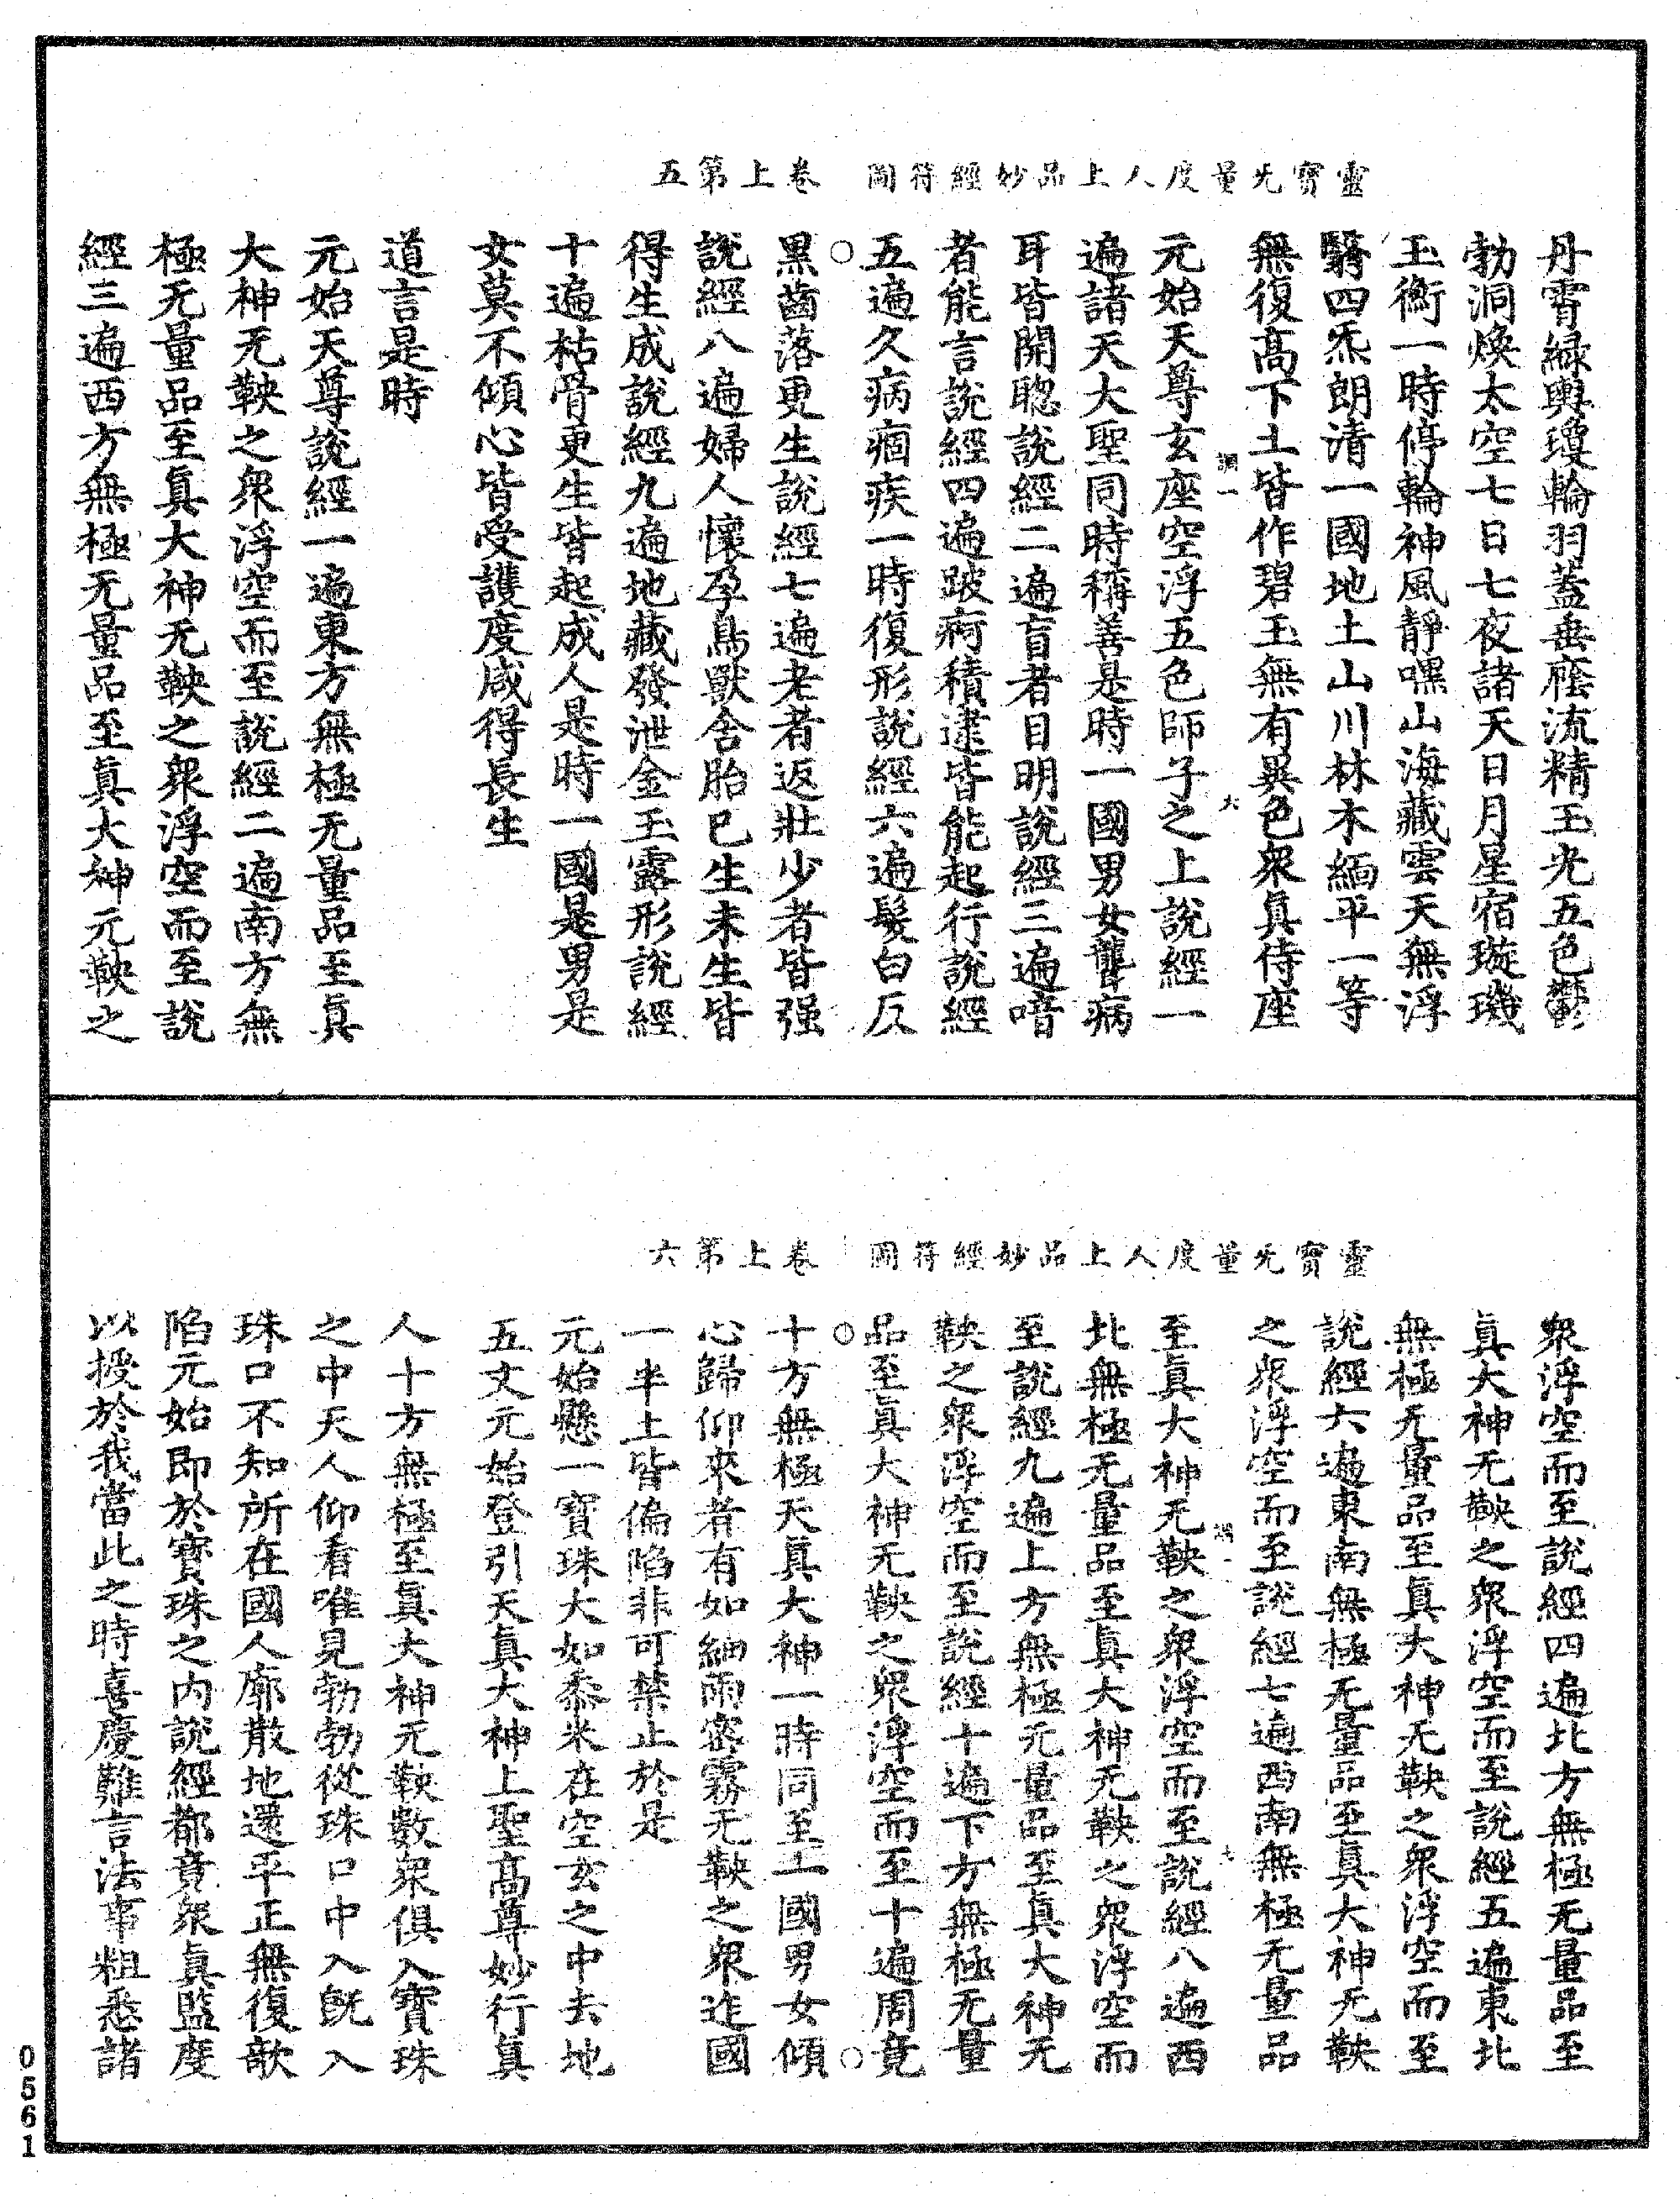 靈寶无量度人上品妙經符圖　卷上第五
丹霄綠輿瓊輪羽蓋垂廕流精玉光五色鬱
勃洞煥太空七日七夜諸天日月星宿璇璣
玉衡一時停輪神風靜嘿山海藏雲天無浮
翳四炁朗清一國地土山川林木緬平一等
無復高下土皆作碧玉無有異色衆眞侍座
元始天尊玄座空浮五色師子之上說經一
遍諸天大聖同時稱善是時一國男女聾病
耳皆開聦說經二遍盲者目明說經三遍喑
者能言說經四遍跛痾積逮皆能起行說經
五遍久病痼疾一時復形說經六遍髮白反
黑齒落更生說經七遍老者返壯少者皆强
說經八遍婦人懷孕鳥獸含胎已生未生皆
得生成說經九遍地藏發泄金玉露形說經
十遍枯骨更生皆起成人是時一國是男是
女莫不傾心皆受護度咸得長生
道言是時
元始天尊說經一遍東方無極无量品至眞
大神无鞅之衆浮空而至說經二遍南方無
極无量品至眞大神无鞅之衆浮空而至說
經三遍西方無極无量品至眞大神无鞅之
靈寶无量度人上品妙經符圖　卷上第六
衆浮空而至說經四遍北方無極无量品至
眞大神无鞅之衆浮空而至說經五遍東北
無極无量品至眞大神无鞅之衆浮空而至
說經六遍東南無極无量品至眞大神无鞅
之衆浮空而至說經七遍西南無極无量品
至眞大神无鞅之衆浮空而至說經八遍西
北無極无量品至眞大神无鞅之衆浮空而
至說經九遍上方無極无量品至眞大神无
鞅之衆浮空而至說經十遍下方無極无量
品至眞大神无鞅之衆浮空而至十遍周竟
十方無極天眞大神一時同至一國男女傾
心歸仰來者有如細雨密霧无鞅之衆迮國
一半土皆偏陷非可禁止於是
元始懸一寶珠大如黍米在空玄之中去地
五丈元始登引天眞大神上聖高尊妙行眞
人十方無極至眞大神无鞅數衆俱入寶珠
之中天人仰看唯見勃勃從珠口中入旣入
珠口不知所在國人廓散地還平正無復欹
陷元始即於寶珠之内說經都竟衆眞監度
以授於我當此之時喜慶難言法事粗悉諸
0561